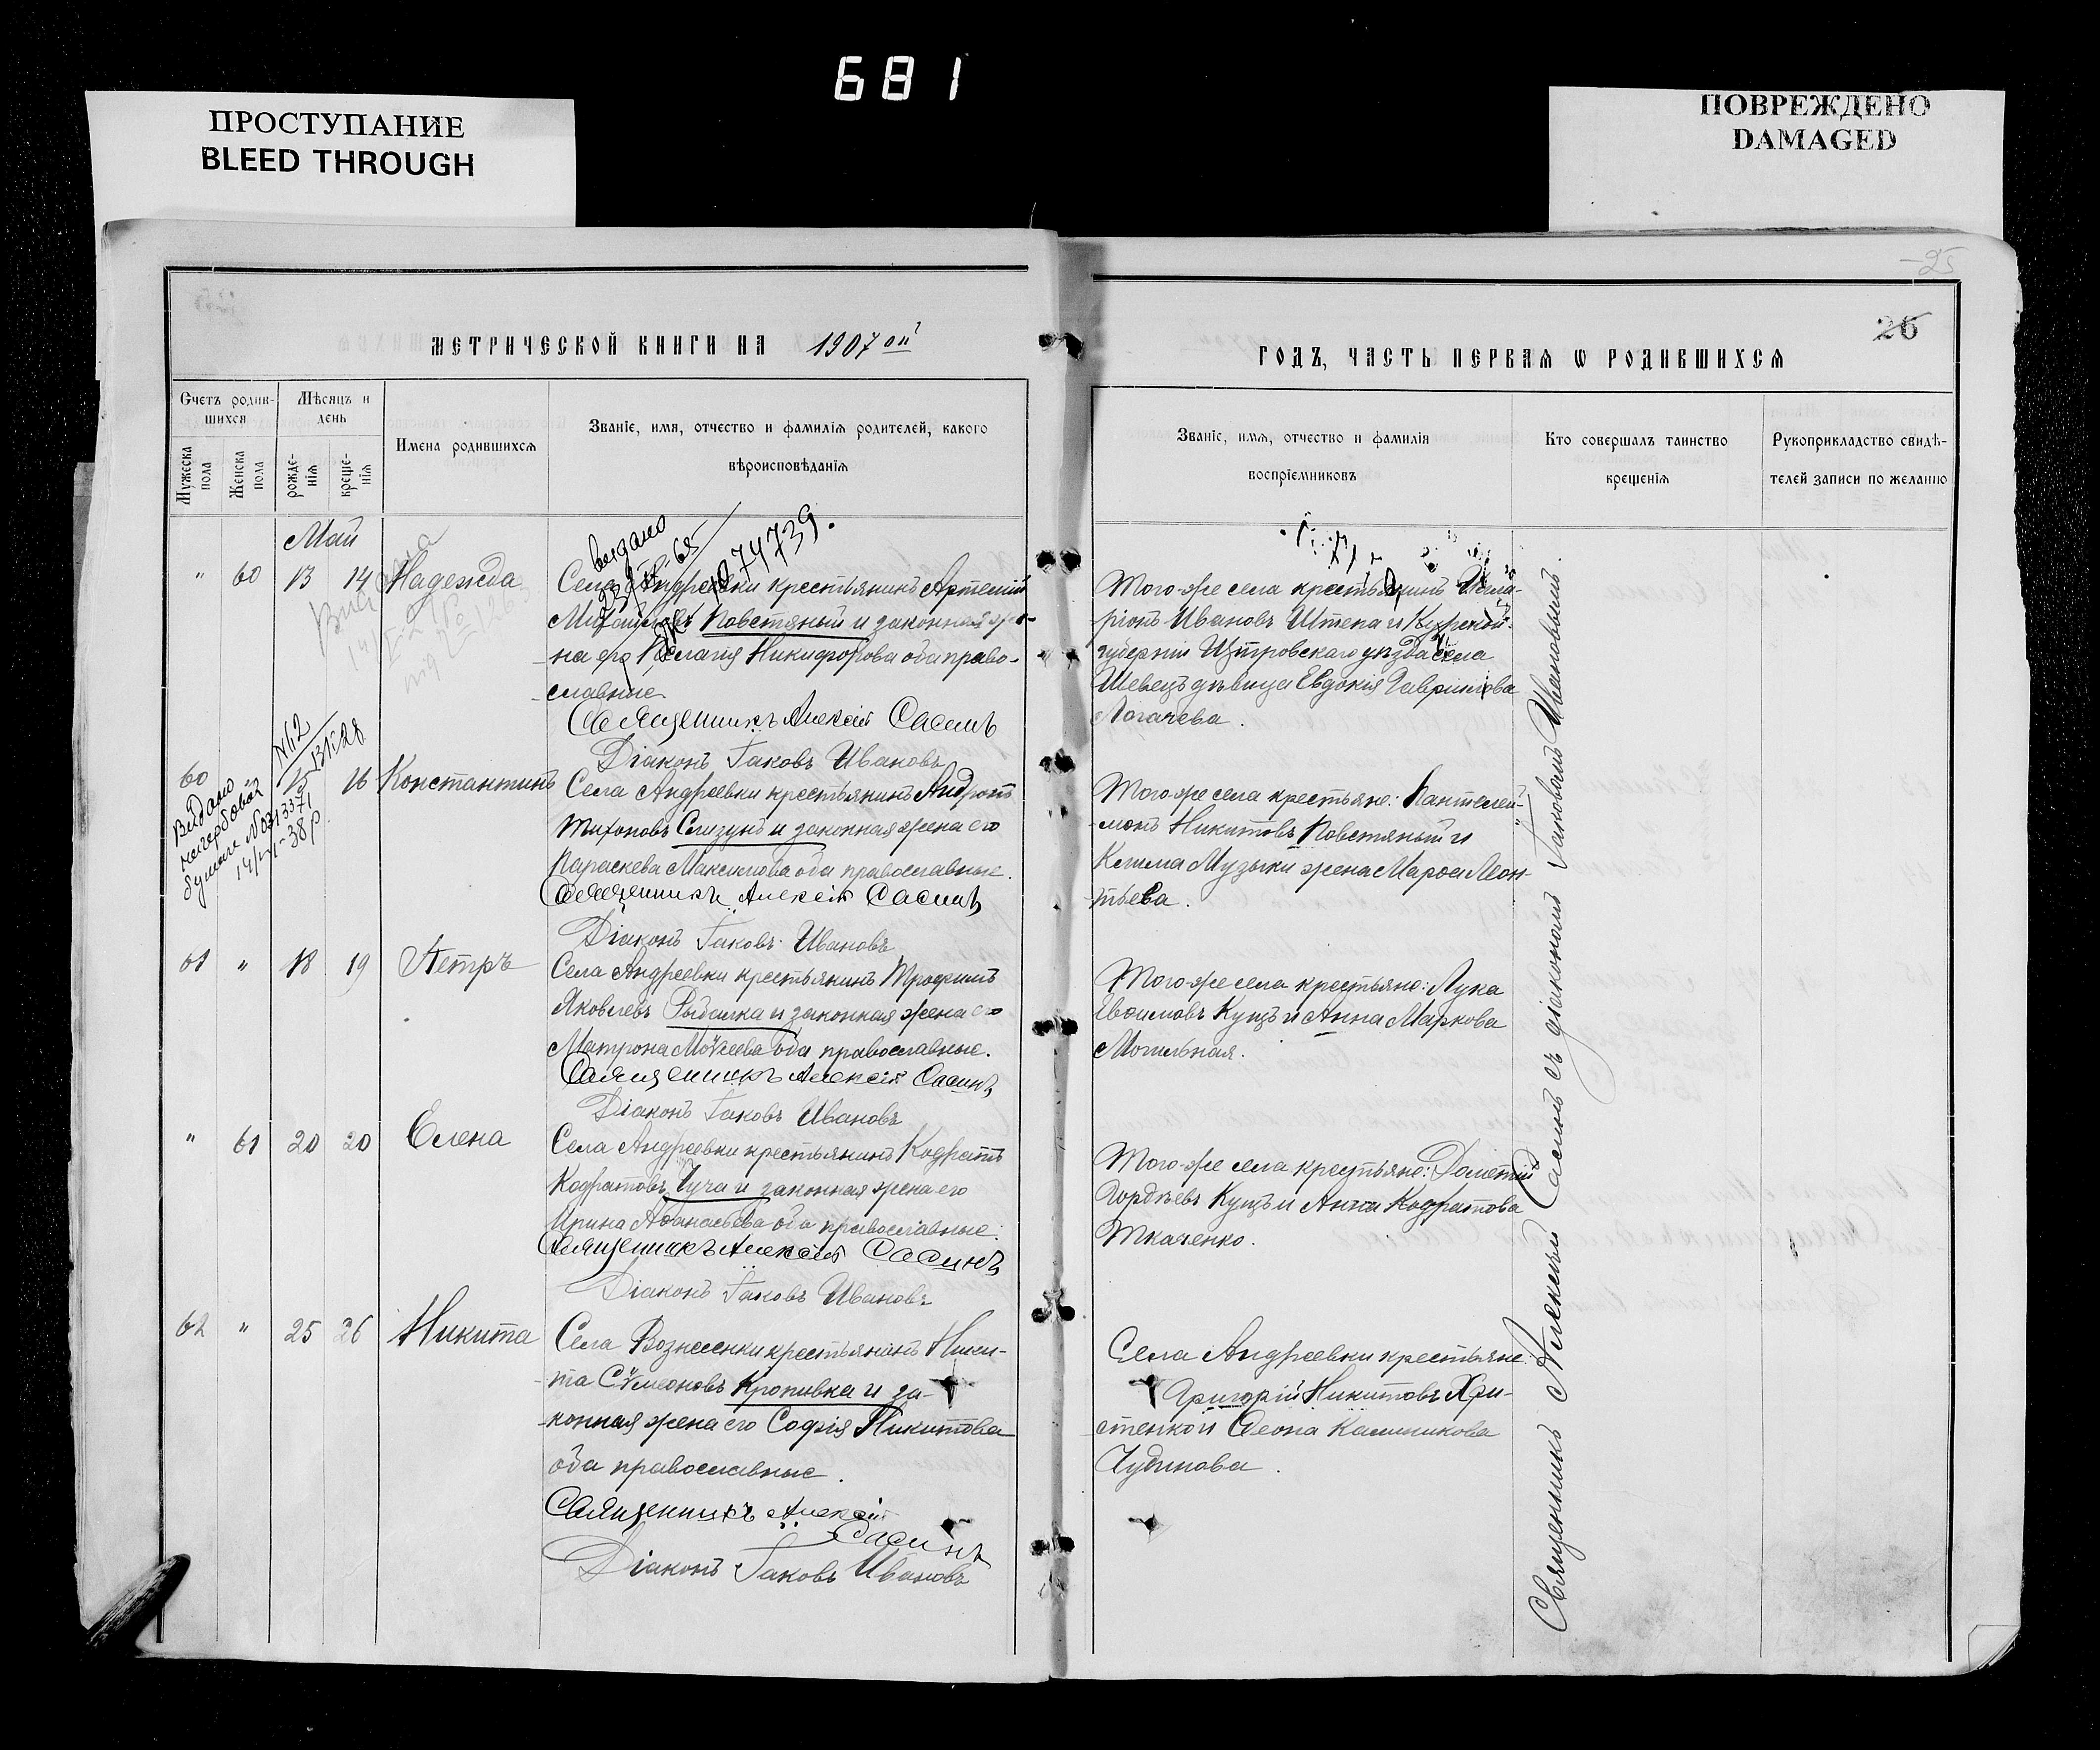 681
ПРОСТУПАНИЕ
BLEED THROUGH
ПОВРЕЖДЕНО
DAMAGED
25
26
МЕТРИЧЕСКОЙ КНИГИ НА 1907 ой
ГОДЪ, ЧАСТЬ ПЕРВАЯ Ѡ РОДИВШИХСЯ
Счетъ родив-
шихся
Мужеска
пола
Женска
пола
Мѣсяцъ и
день
рожде-
нія
креще-
нія
Имена родившихся
Званіе, имя, отчество и фамилія родителей, какого
вѣроисповѣданія
Званіе, имя, отчество и фамилія
воспріемниковъ
Кто совершалъ таинство
крещенія
Рукоприкладство свидѣ-
телей записи по желанію
Май
выдано
74739.
" 60 13 14 Надежда
Села Андреевки крестьянинъ Артемій
Михайловъ Повстяный и законная же-
на его Пелагія Никифорова оба право-
славные
Священникъ Алексій Сасинъ
Діаконъ Іаковъ Ивановъ
Того-же села крестьянинъ Илла-
ріонъ Ивановъ Штепа и Курской
губерніи Щигровскаго уѣзда села
Шевецъ дѣвица Евдокія Гавриилова
Логачева.
№12
60 15 16 Константинъ
Выдано
негербовой
бумаге № 0313371
14/VI-38 р
Села Андреевки крестьянинъ Андронъ
Тихоновъ Слизунъ и законная жена его
Параскева Максимова оба православные.
Священникъ Алексій Сасинъ
Діаконъ Іаковъ Ивановъ
Того-же села крестьяне: Пантелей-
-монъ Никитовъ Повстяный и
Клима Музыки жена Марѳа Леон-
тьева.
61 " 18 19 Петръ
Села Андреевки крестьянинъ Трофимъ
Яковлевъ Рыбалка и законная жена его
Матрона Моѵсеева оба православные.
Священникъ Алексій Сасинъ
Діаконъ Іаковъ Ивановъ
Того-же села крестьяне: Лука
Евѳимовъ Кущъ и Анна Маркова
Могильная.
" 61 20 20 Елена
Села Андреевки крестьянинъ Кодратъ
Кодратовъ Чуча и законная жена его
Ирина Аѳанасьева оба православные.
Священникъ Алексій Сасинъ
Діаконъ Іаковъ Ивановъ
Того-же села крестьяне: Дометій
Гордѣевъ Кущъ и Анна Кодратова
Ткаченко.
62 " 25 26 Никита
Села Вознесенки крестьянинъ Ники-
та Сѵмеоновъ Кропивка и за-
конная жена его Софія Никитова
оба православные.
Священникъ Алексій
Сасинъ
Діаконъ Іаковъ Ивановъ
Села Андреевки крестьяне:
Григорій Никитовъ Хри-
стенко и Ѳеона Калиникова
Чубинова.
Священникъ Алексѣй Сасинъ съ діакономъ Іаковомъ Ивановымъ.